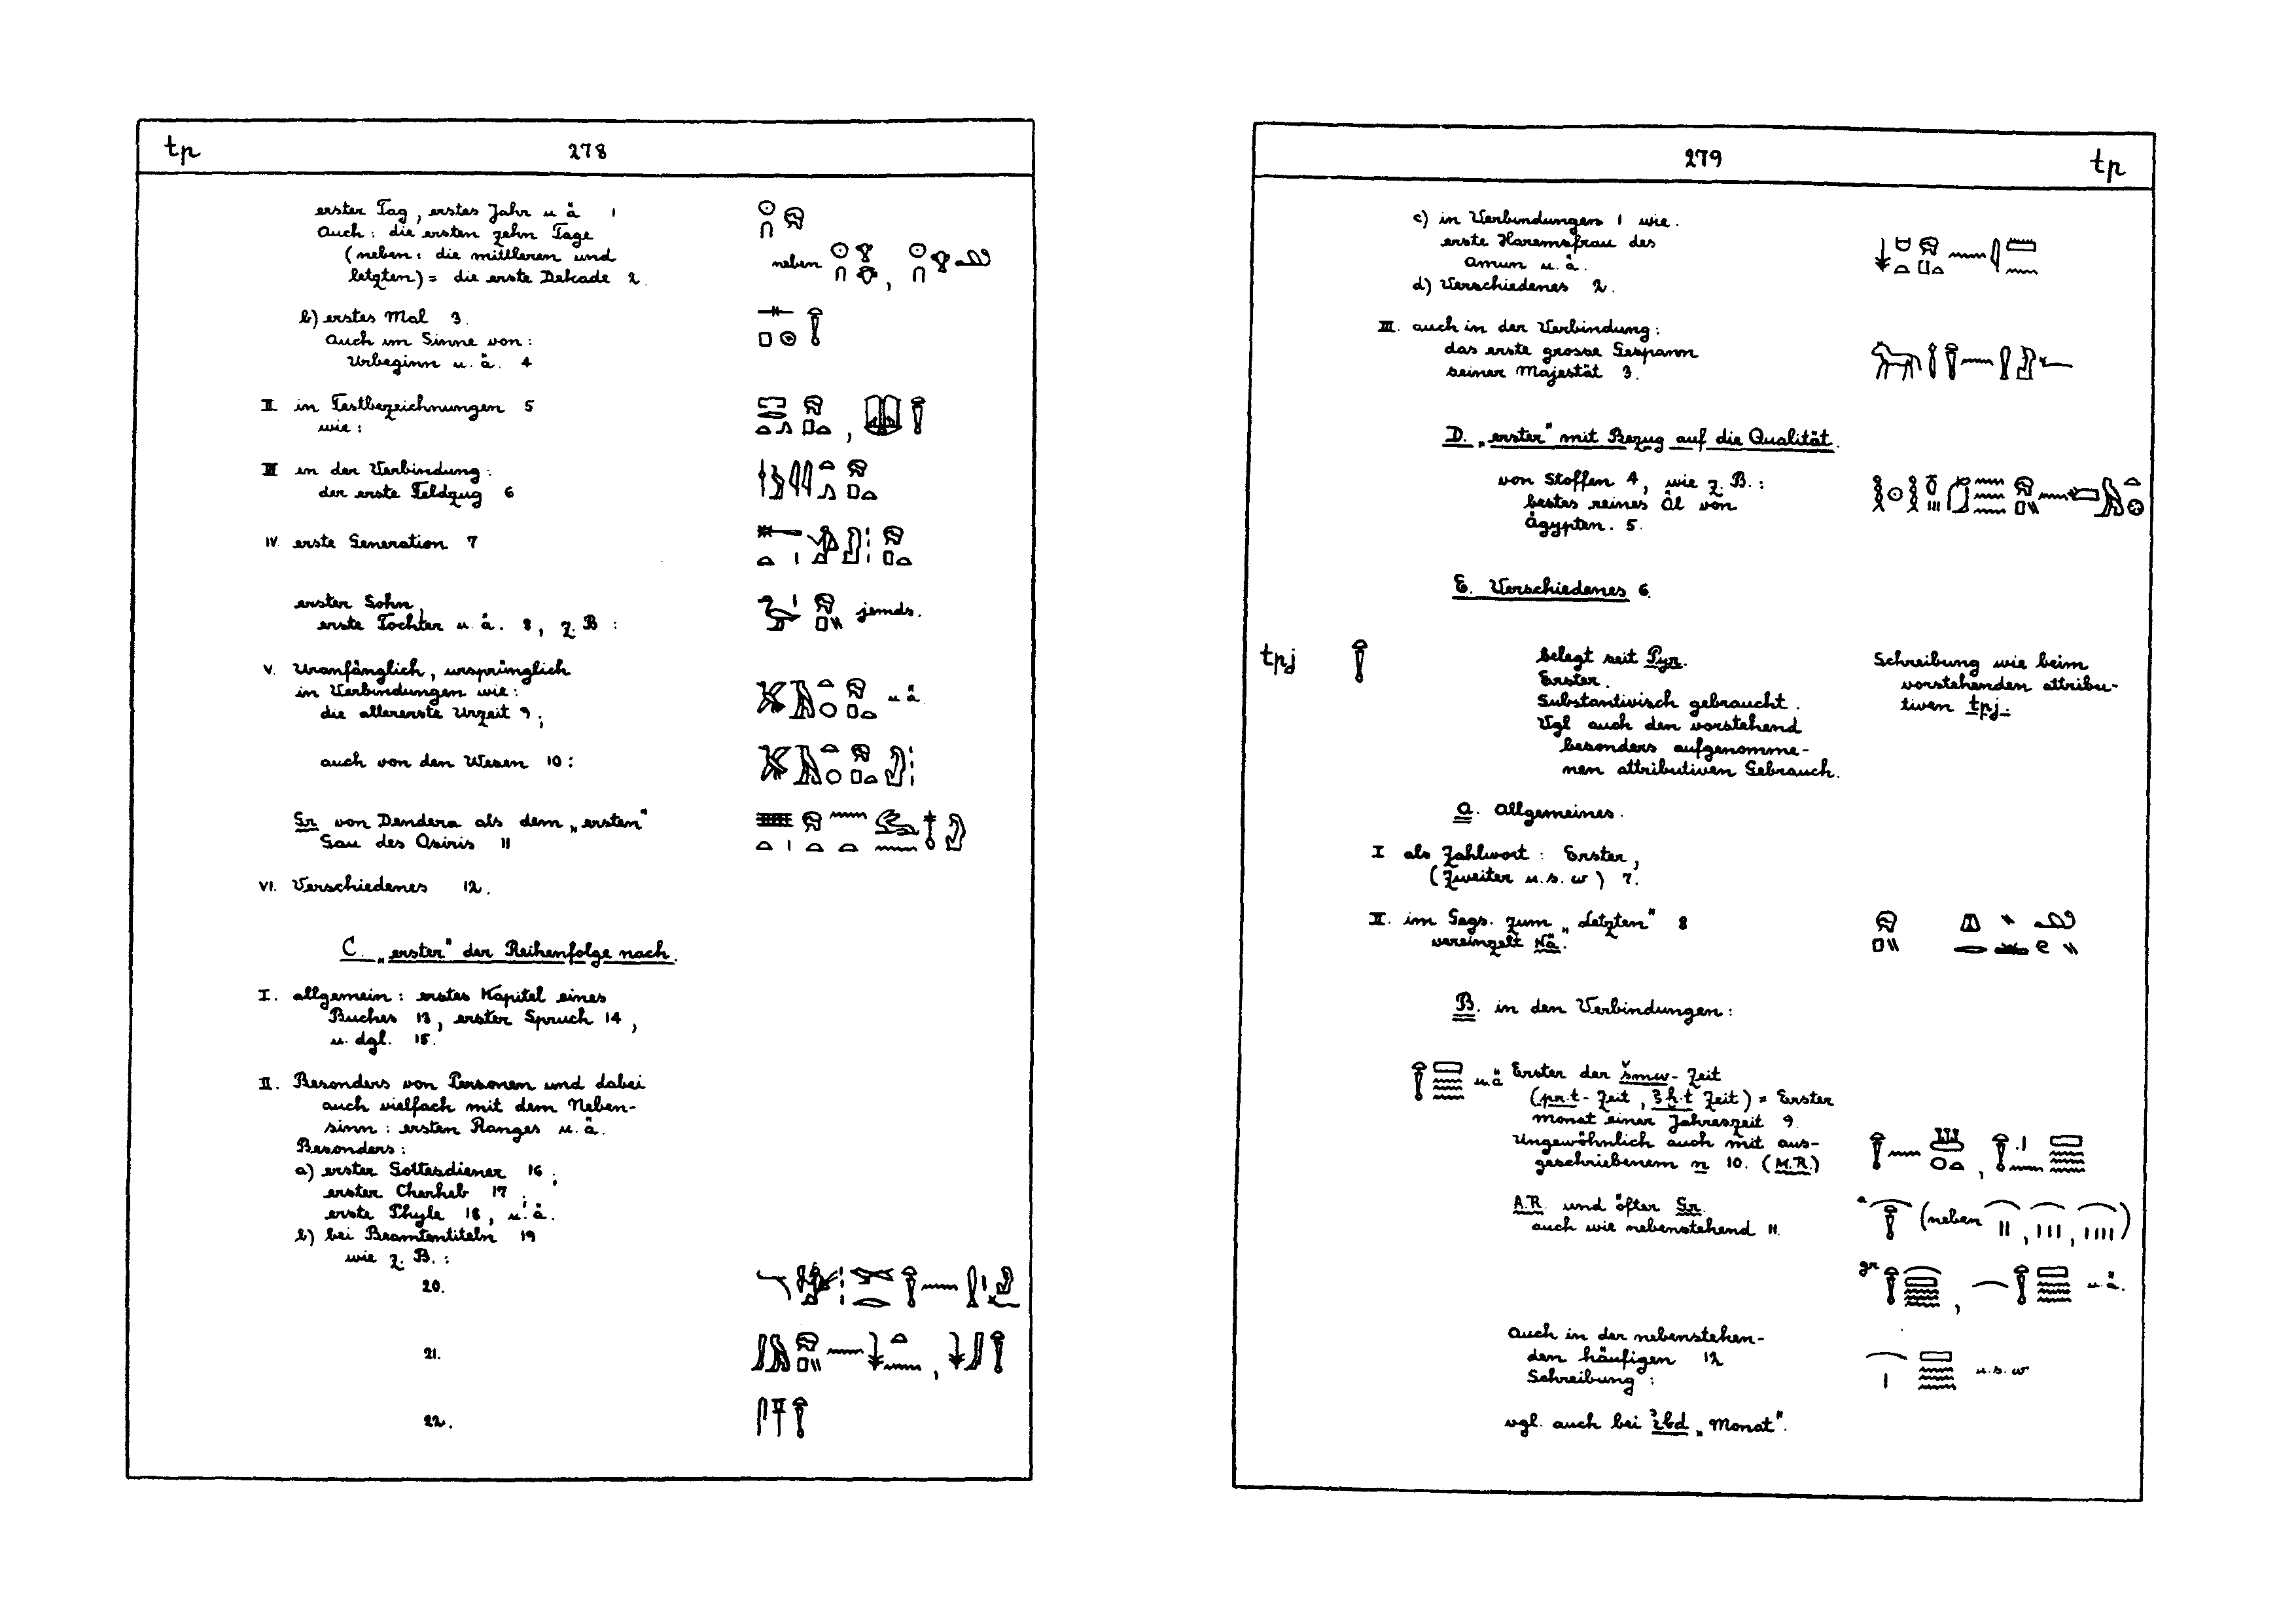 tp 278
erster Tag, erstes Jahr u. ä 1
Auch: die ersten zehn Tage
(neben: die mittleren und
neben
letzten) = die erste Dekade 2.
b) erstes Mal 3.
Auch im Sinne von:
Urbeginn u. ä. 4
II in Festbezeichnungen 5
wie:
III in der Verbindung:
der erste Feldzug 6
IV erste Generation 7
erster Sohn,
erste Tochter u. ä. 8, z. B :
jemds.
V. Uranfänglich, ursprünglich
in Verbindungen wie:
u ä.
die allererste Urzeit 9;
auch von den Wesen 10:
Gr von Dendera als dem „ersten“
Gau des Osiris 11
VI. Verschiedenes 12.
C. „erster“ der Reihenfolge nach.
I. allgemein: erstes Kapitel eines
Buches 13, erster Spruch 14,
u. dgl. 15.
II. Besonders von Personen und dabei
auch vielfach mit dem Neben-
sinn: ersten Ranges u. ä.
Besonders:
a) erster Gottesdiener 16;
erster Cherheb 17;
erste Phyle 18, u. ä.
b) bei Beamtentiteln 19
wie z. B.:
20.
21.
22.
279 tp
c) in Verbindungen 1 wie.
erste Haremsfrau des
Amun u. ä.
d) Verschiedenes 2.
III. auch in der Verbindung:
das erste grosse Gespann
seiner Majestät 3.
D. „erster“ mit Bezug auf die Qualität.
von Stoffen 4, wie z. B.:
bestes reines Öl von
Ägypten. 5.
E. Verschiedenes 6.
tpj
belegt seit Pyr.
Erster.
Substantivisch gebraucht.
Vgl auch den vorstehend
besonders aufgenomme-
nen attributiven Gebrauch.
Schreibung wie beim
vorstehenden attribu-
tiven tpj.
A. Allgemeines.
I als Zahlwort: Erster,
(Zweiter u. s. w) 7.
II. im Ggs. zum „Letzten“ 8
vereinzelt Nä.
B. in den Verbindungen:
u. ä Erster der šmw-Zeit
(pr.t-Zeit, ꜣḫ.t Zeit) = Erster
Monat einer Jahreszeit 9.
Ungewöhnlich auch mit aus-
geschriebenem n 10. (M.R.)
A.R. und öfter Gr.
auch wie nebenstehend 11.
a (neben , , )
gr , u. ä.
Auch in der nebenstehen-
den häufigen 12
Schreibung:
u. s. w
vgl. auch bei ꜣbd „Monat“.